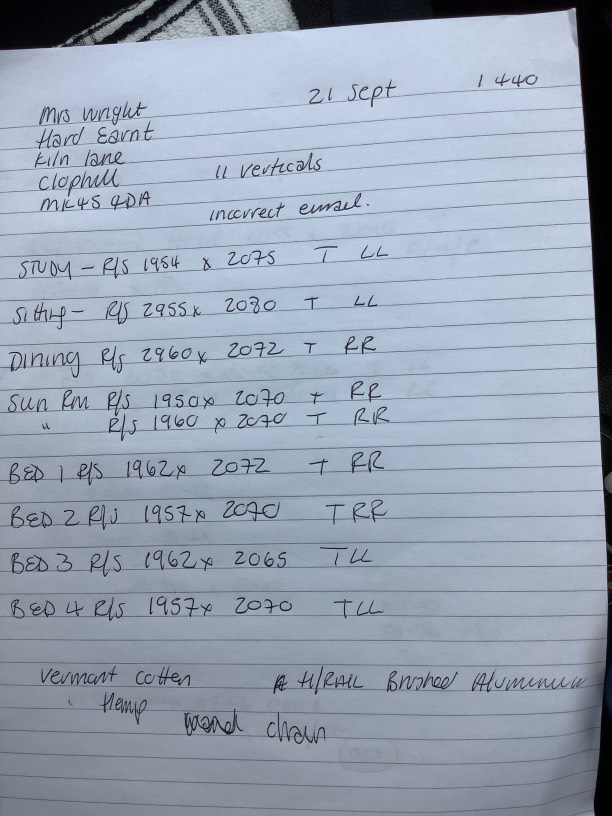 21 Sept 1440
Mrs Wright
Hard Earnt
Kiln lane
Clophill
MK45 4DA
11 verticals
incorrect email.
STUDY - R/S 1954 x 2075 T LL
Sitting - R/S 2955 x 2080 T LL
DINING R/S 2960 x 2072 T RR
Sun Rm R/S 1950 x 2070 T RR
" R/S 1960 x 2070 T RR
BED 1 R/S 1962 x 2072 T RR
BED 2 R/S 1957 x 2070 T RR
BED 3 R/S 1962 x 2065 T LL
BED 4 R/S 1957 x 2070 T LL
Vermont Cotten H/RAIL Brushed Aluminium
" Hemp chain